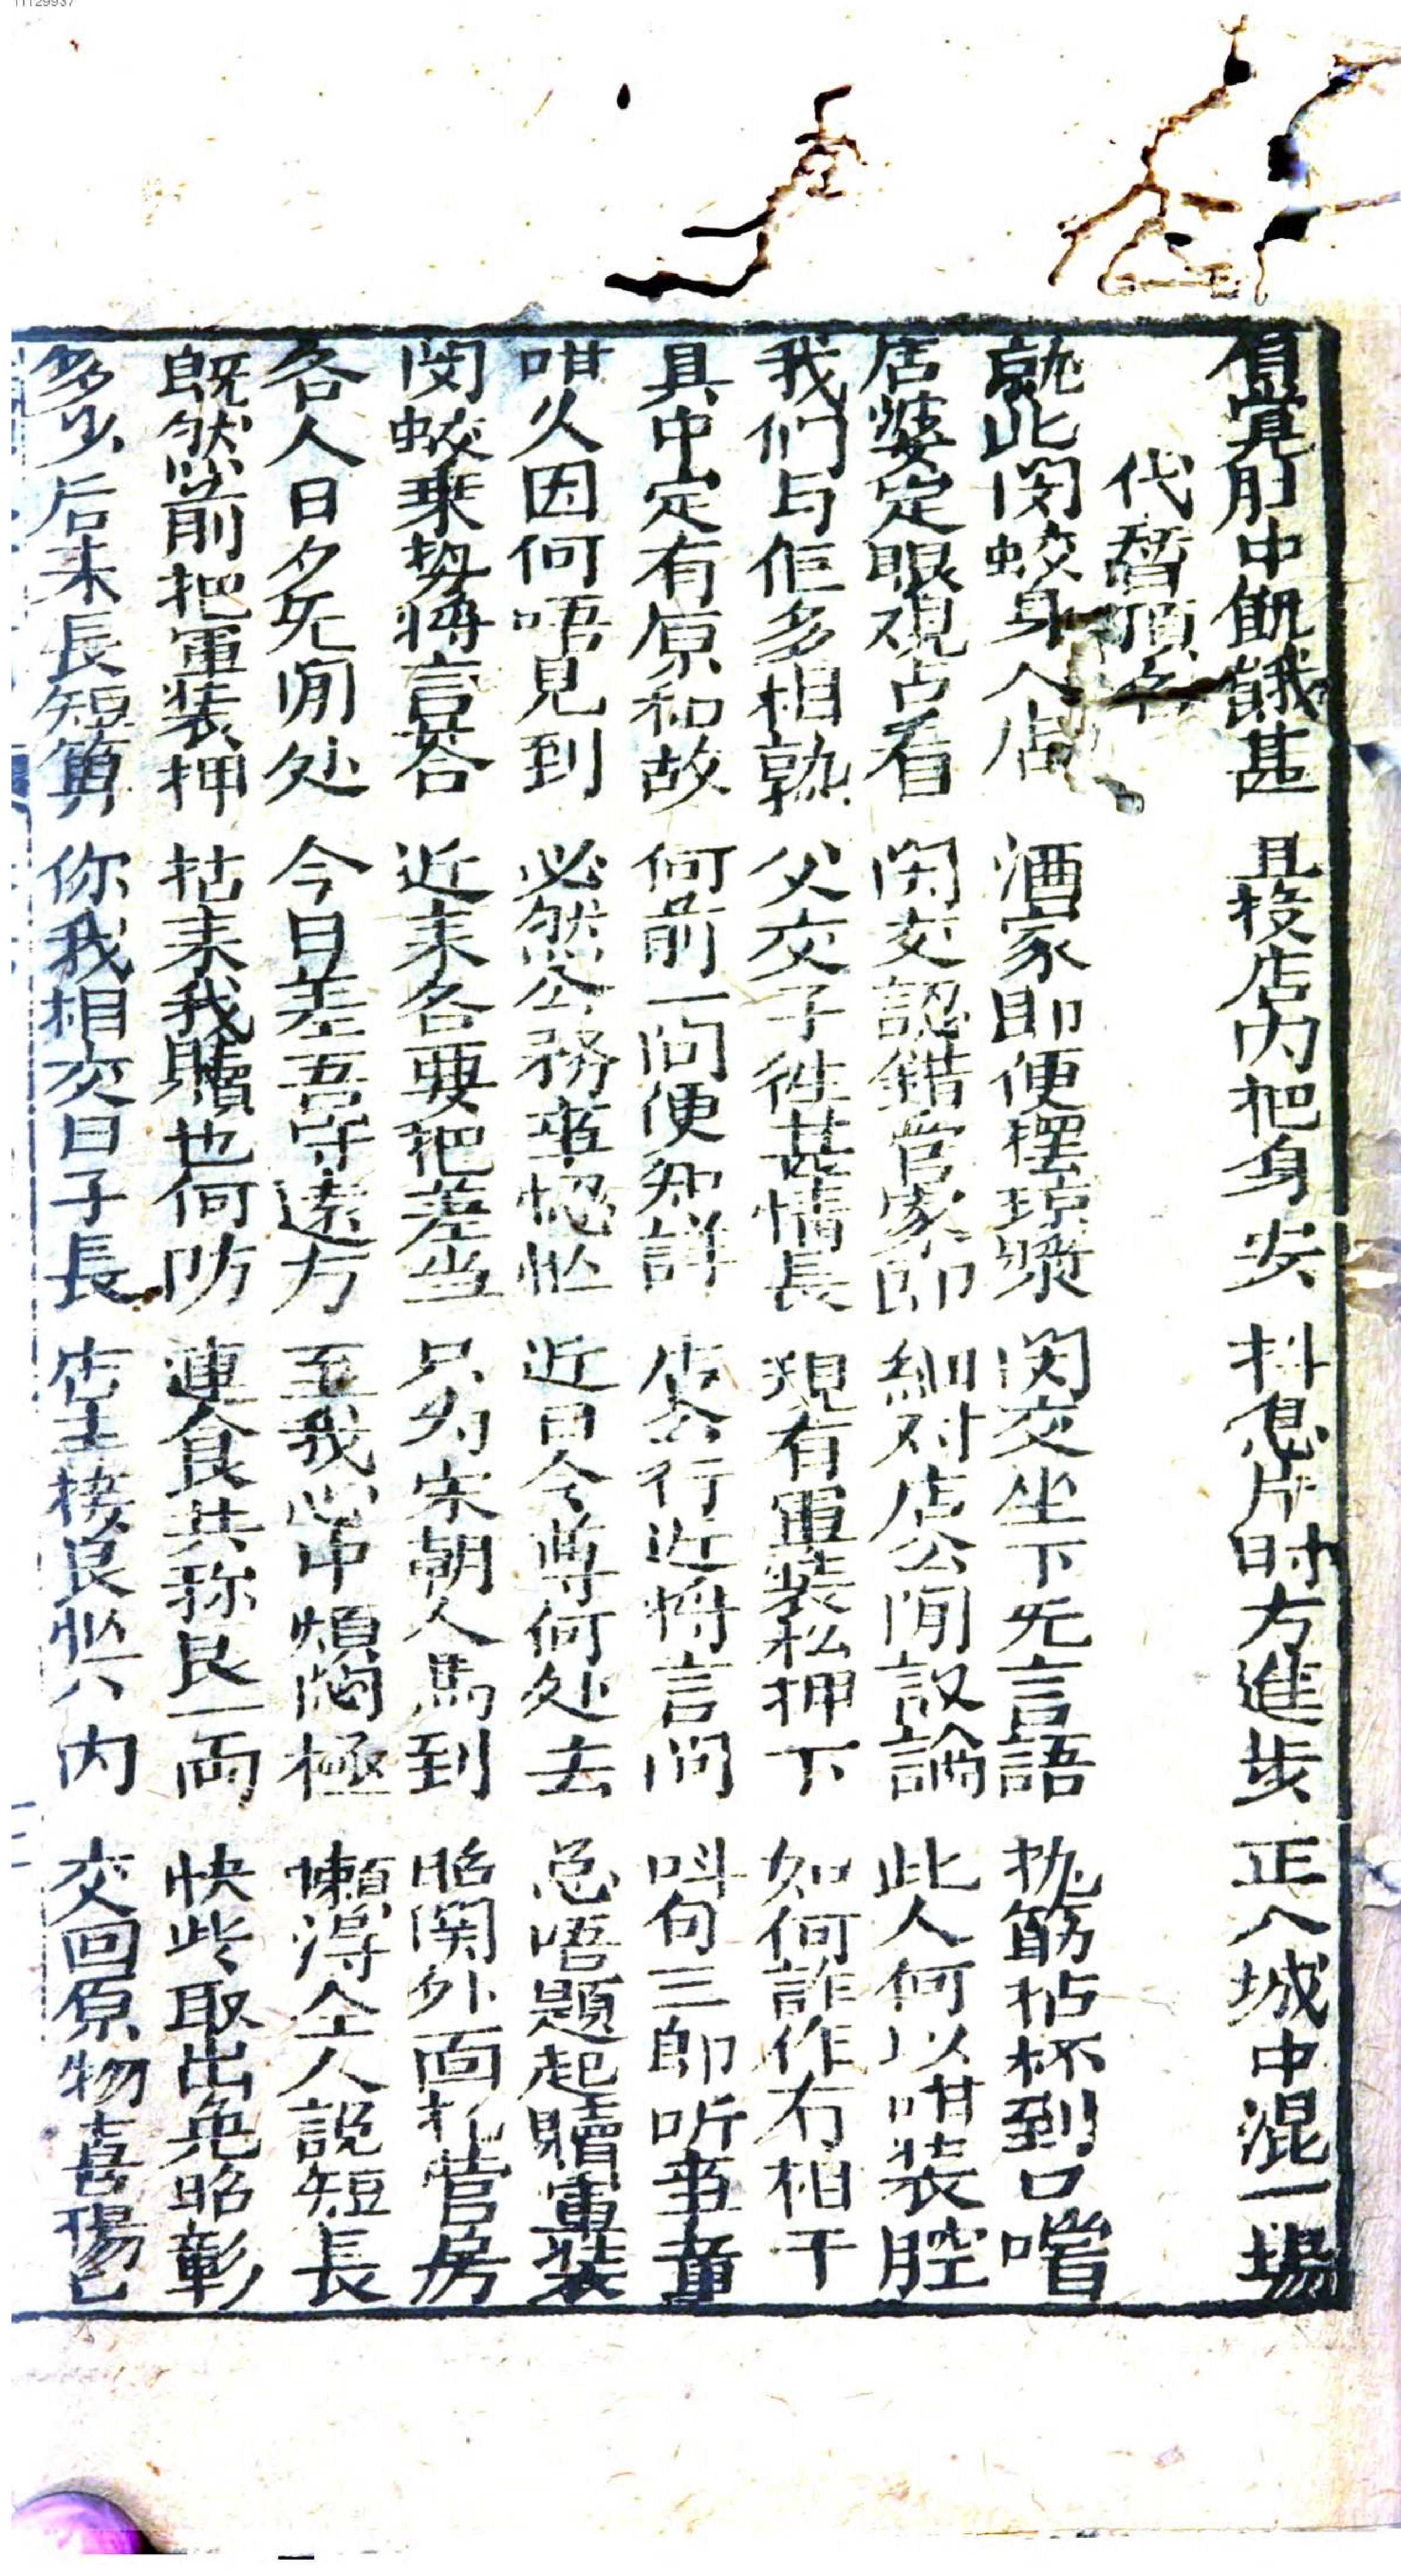 頂覚肚中飢餓甚 且投店内把身安 抖息片时方進步 正入城中混一場
代替頂名
就此闵蛟身入店 酒家即便摆琼漿 闵交坐下无言語 执筯拈杯到口嚐
店婆定眼观占看 闵交認錯官家郎 細对店公闲議論 此人何以咁装腔
我们与佢多相熟 父交子徃甚情長 現有軍装私押下 如何詐作冇相干
具中定有原和故 何前一问便知詳 店公行近将言问 叫句三郎听事童
咁久因何唔見到 必然公务事怱忙 近日令尊何处去 总唔題起贖軍装
闵蛟乘势将言答 近来各要把差当 只为宋朝人馬到 昭関外面扎营房
各人日夕无闲处 今日差吾守遠方 至我心中煩悶極 懒得仝人說短長
既然前把軍装押 拈来我贖也何防 連食共称艮一両 快些取出免昭彰
多少后来長短算 你我相交日子長 店主接艮忙入内 交回原物喜揚
11129937